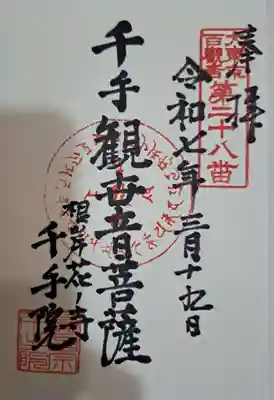 奉拝
大東京
百観音
第二十八番
令和七年三月十九日
千手観世音菩薩
根岸花ノ寺
千手院